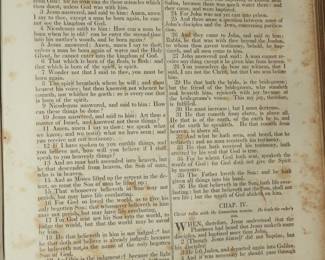 3 Jesus answered, and said to him: Amen, amen
I say to thee, except a man be born again, he can-
not see the kingdom of God.
4 Nicodemus said to him: How can a man be
born when he is old? can he enter the second time
into his mother's womb, and be born again?
5 Jesus answered: Amen, amen I say to thee,
unless a man be born again of water and the Holy
Ghost, he cannot enter into the kingdom of God.
6 That which is born of the flesh, is flesh: and
that which is born of the spirit, is spirit.
7 Wonder not that I said to thee, you must be
born again.
8 The spirit breatheth where he will: and thou
hearest his voice; but thou knowest not whence he
cometh, nor whither he goeth: so is every one that
is born of the spirit.
9 Nicodemus answered, and said to him: How
can these things be done?
10 Jesus answered, and said to him: Art thou a
master of Israel, and knowest not these things?
11 Amen, amen I say to thee: we speak what
we know; and we testify what we have seen; and
you receive not our testimony.
12 If I have spoken to you earthly things, and
you believe not, how will you believe if I shall
speak to you heavenly things?
13 And no man hath ascended into heaven, but
he that descended from heaven, the Son of man,
who is in heaven.
14 And as Moses lifted up the serpent in the de-
sert, so must the Son of man be lifted up:
15 That whosoever believeth in him may not
perish, but may have life everlasting.
16 For God so loved the world, as to give his
only begotten Son; that whosoever believeth in him
may not perish, but may have life everlasting.
17 For God sent not his Son into the world, to
judge the world, but that the world may be saved
by him.
18 He that believeth in him is not judged: but
he that doth not believe is already judged: because
he believeth not in the name of the only begotten
Son of God.
19 And this is the judgment: because the light
25 And there arose a question between some of
John's disciples and the Jews, concerning purifica-
tion.
26 And they came to John, and said to him:
Rabbi, he that was with thee beyond the Jordan,
to whom thou gavest testimony, behold, he bap-
tizeth, and all men come to him.
27 John answered and said: A man cannot re-
ceive any thing except it be given him from heaven.
28 You yourselves do bear me witness, that I
said, I am not the Christ, but that I am sent before
him.
29 He that hath the bride, is the bridegroom;
but the friend of the bridegroom, who standeth
and heareth him, rejoiceth with joy because of
the bridegroom's voice. This my joy, therefore,
is fulfilled.
30 He must increase, but I must decrease.
31 He that cometh from above, is above all.
He that is of the earth, of the earth he is, and
of the earth he speaketh. He that cometh from
heaven, is above all.
32 And what he hath seen, and heard, that he
testifieth: and no man receiveth his testimony.
33 He that hath received his testimony, hath
set his seal that God is true.
34 For he whom God hath sent, speaketh the
words of God: for God doth not give the Spirit
by measure.
35 The Father loveth the Son: and he hath
given all things into his hand.
36 He that believeth in the Son, hath life ever-
lasting: but he that believeth not the Son, shall not
see life, but the wrath of God abideth on him.
CHAP. IV.
WHEN, therefore, Jesus understood that the
Pharisees had heard that Jesus maketh more
disciples, and baptizeth more than John,
2 (Though Jesus himself did not baptize, but
his disciples,)
3 He left Judea, and departed again into Galilee.